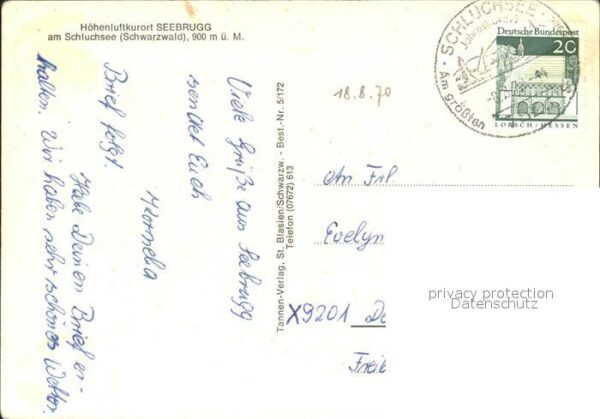 Höhenluftkurort SEEBRUGG
am Schluchsee (Schwarzwald), 900 m ü. M.
Viele Grüße aus Seebrugg
sendet Euch
Kornelia
Brief folgt.
Habe Deinen Brief er-
halten. Wir haben sehr schönes Wetter.
Tannen-Verlag, St. Blasien/Schwarzw. - Best.-Nr. 5/172
Telefon (07672) 613
18.8.70
SCHLUCHSEE
Am größten
Deutsche Bundespost
20
LORSCH/HESSEN
An Frl.
Evelyn
X9201 De
Freib
privacy protection
Datenschutz